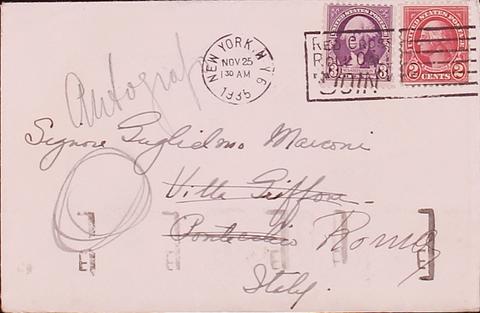 Autograf
NEW YORK, N.Y. 6
NOV 25
1935
UNITED STATES POSTAGE
3 3
UNITED STATES POSTAGE
2 CENTS 2
RED CROSS
ROLL CALL
JOIN
Signore Guglielmo Marconi
Villa Griffone
Pontecchio Roma
Italy.